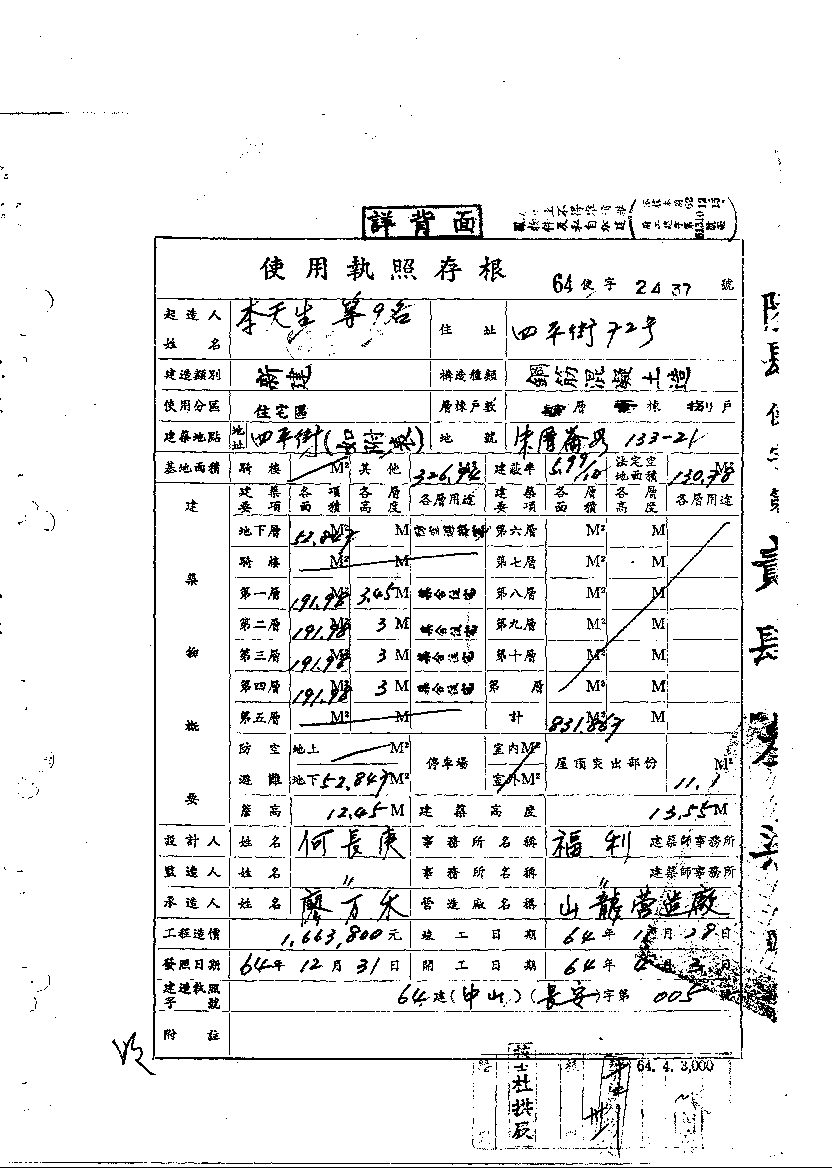 詳背面
使用執照存根 64使字2437號
起造人姓名 李天生等9名 住址 四平街72号
建造類別 新建 構造種類 鋼筋混凝土造
使用分區 住宅區 層棟戶數 層 棟 戶
建築地點 地址 四平街(如附表) 地號 133-21
基地面積 騎樓 M² 其他 326.94 M² 建蔽率 5.99/10 法定空地面積 130.78 M²
建築物概要
建築要項 各項面積 各層高度 各層用途 建築要項 各層面積 各層高度 各層用途
地下層 52.847 M² M 第六層 M² M
騎樓 M² M 第七層 M² M
第一層 191.98 M² 3.45 M 集合住宅 第八層 M² M
第二層 191.98 M² 3 M 集合住宅 第九層 M² M
第三層 191.98 M² 3 M 集合住宅 第十層 M² M
第四層 191.98 M² 3 M 集合住宅 第 層 M² M
第五層 M² M 計 831.867 M² M
防空避難 地上 M² 停車場 室內M² 屋頂突出部份 M²
地下 52.847 M² 室外M² 11.1
簷高 12.45 M 建築高度 13.55 M
設計人 姓名 何長庚 事務所名稱 福利 建築師事務所
監造人 姓名 〃 事務所名稱 〃 建築師事務所
承造人 姓名 廖万禾 營造廠名稱 山龍营造廠
工程造價 1,663,800元 竣工日期 64年 月28日
發照日期 64年12月31日 開工日期 64年 月3日
建造執照字號 64建(中山)(長安)字第005號
附註
技士杜拱辰
64.4.3,000